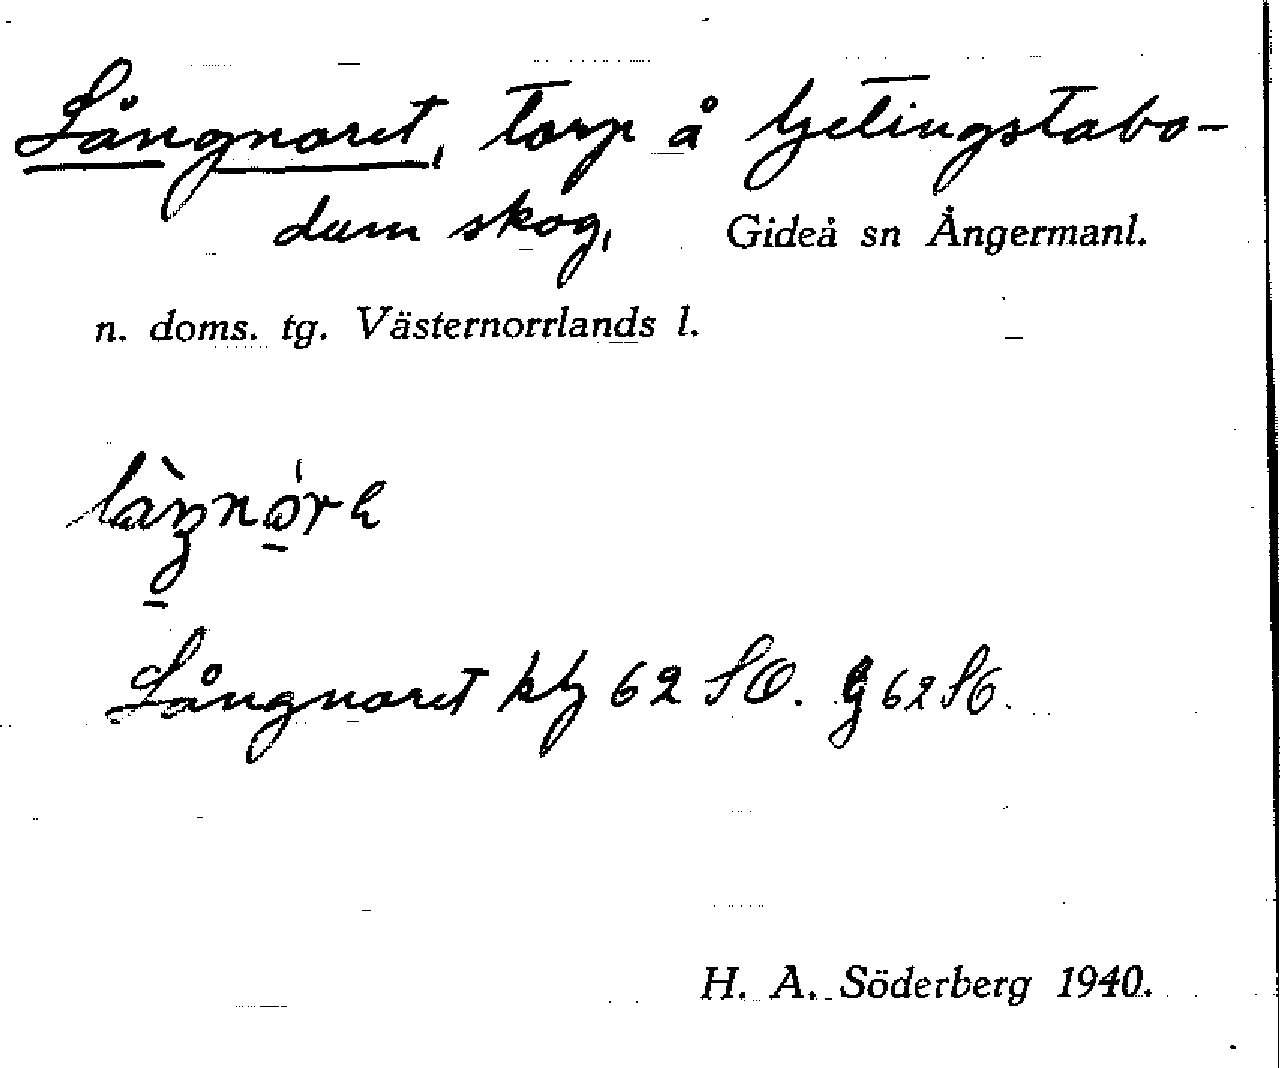 Långnoret, torp å Getingstabo-
dam skog, Gideå sn Ångermanl.
n. doms. tg. Västernorrlands l.
Långnoret 62 SO. G 62 SO.
H. A. Söderberg 1940.